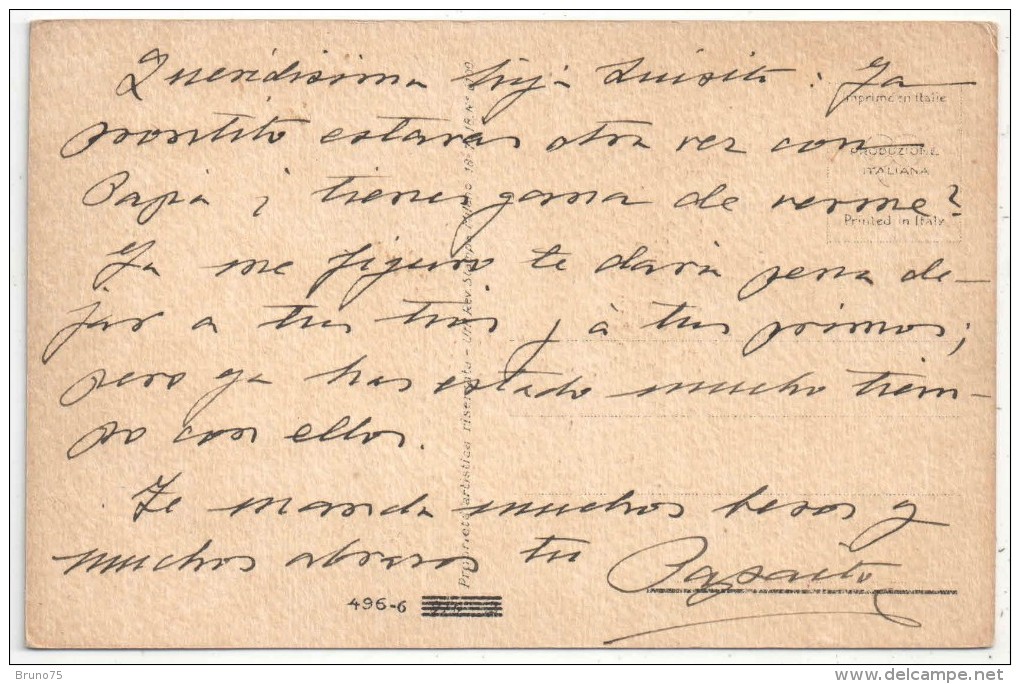 Queridisima hija Luisita: Ya
prontito estaras otra vez con
Papá ¿ tienes gana de verme?
Ya me figuro te dará pena de-
jar a tus tios y á tus primos;
pero ya has estado mucho tiem-
po con ellos.
Te manda muchos besos y
muchos abrazos tu Papaito
Imprimé en Italie
PRODUZIONE
ITALIANA
Printed in Italy
Proprietà artistica riservata - Uff. Rev. Stampa
496-6
Bruno75
delcampe.net